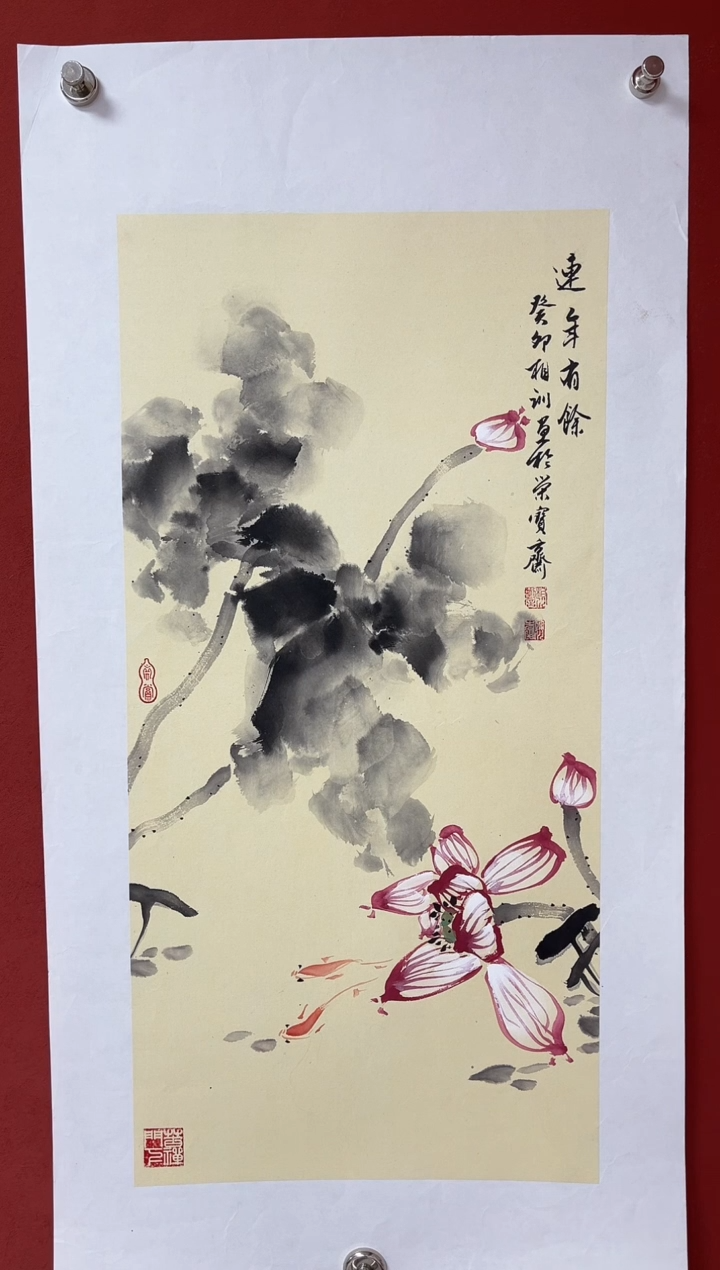 連年有餘
癸卯相训畫於荣寶齋